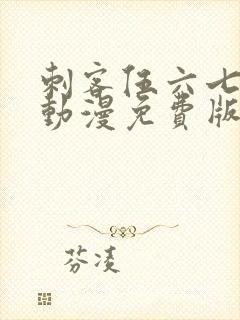 刺客伍六七
動漫免費版
芬凌